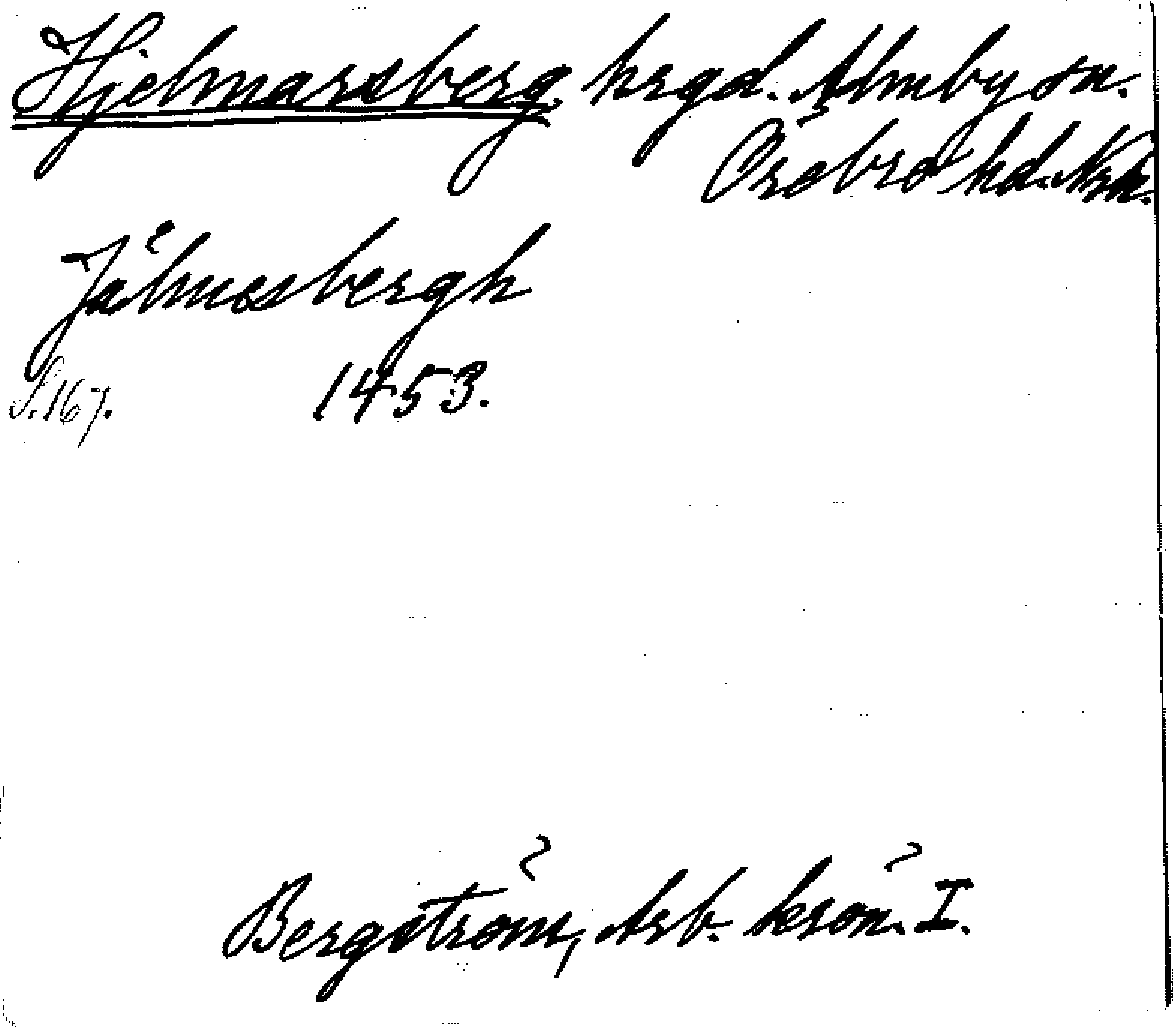 Hjelmarsberg hrgd. Almby sn.
Örebro hd. Nrk.
Jælmesbergh
S. 167. 1453.
Bergström, Arb. krön. I.